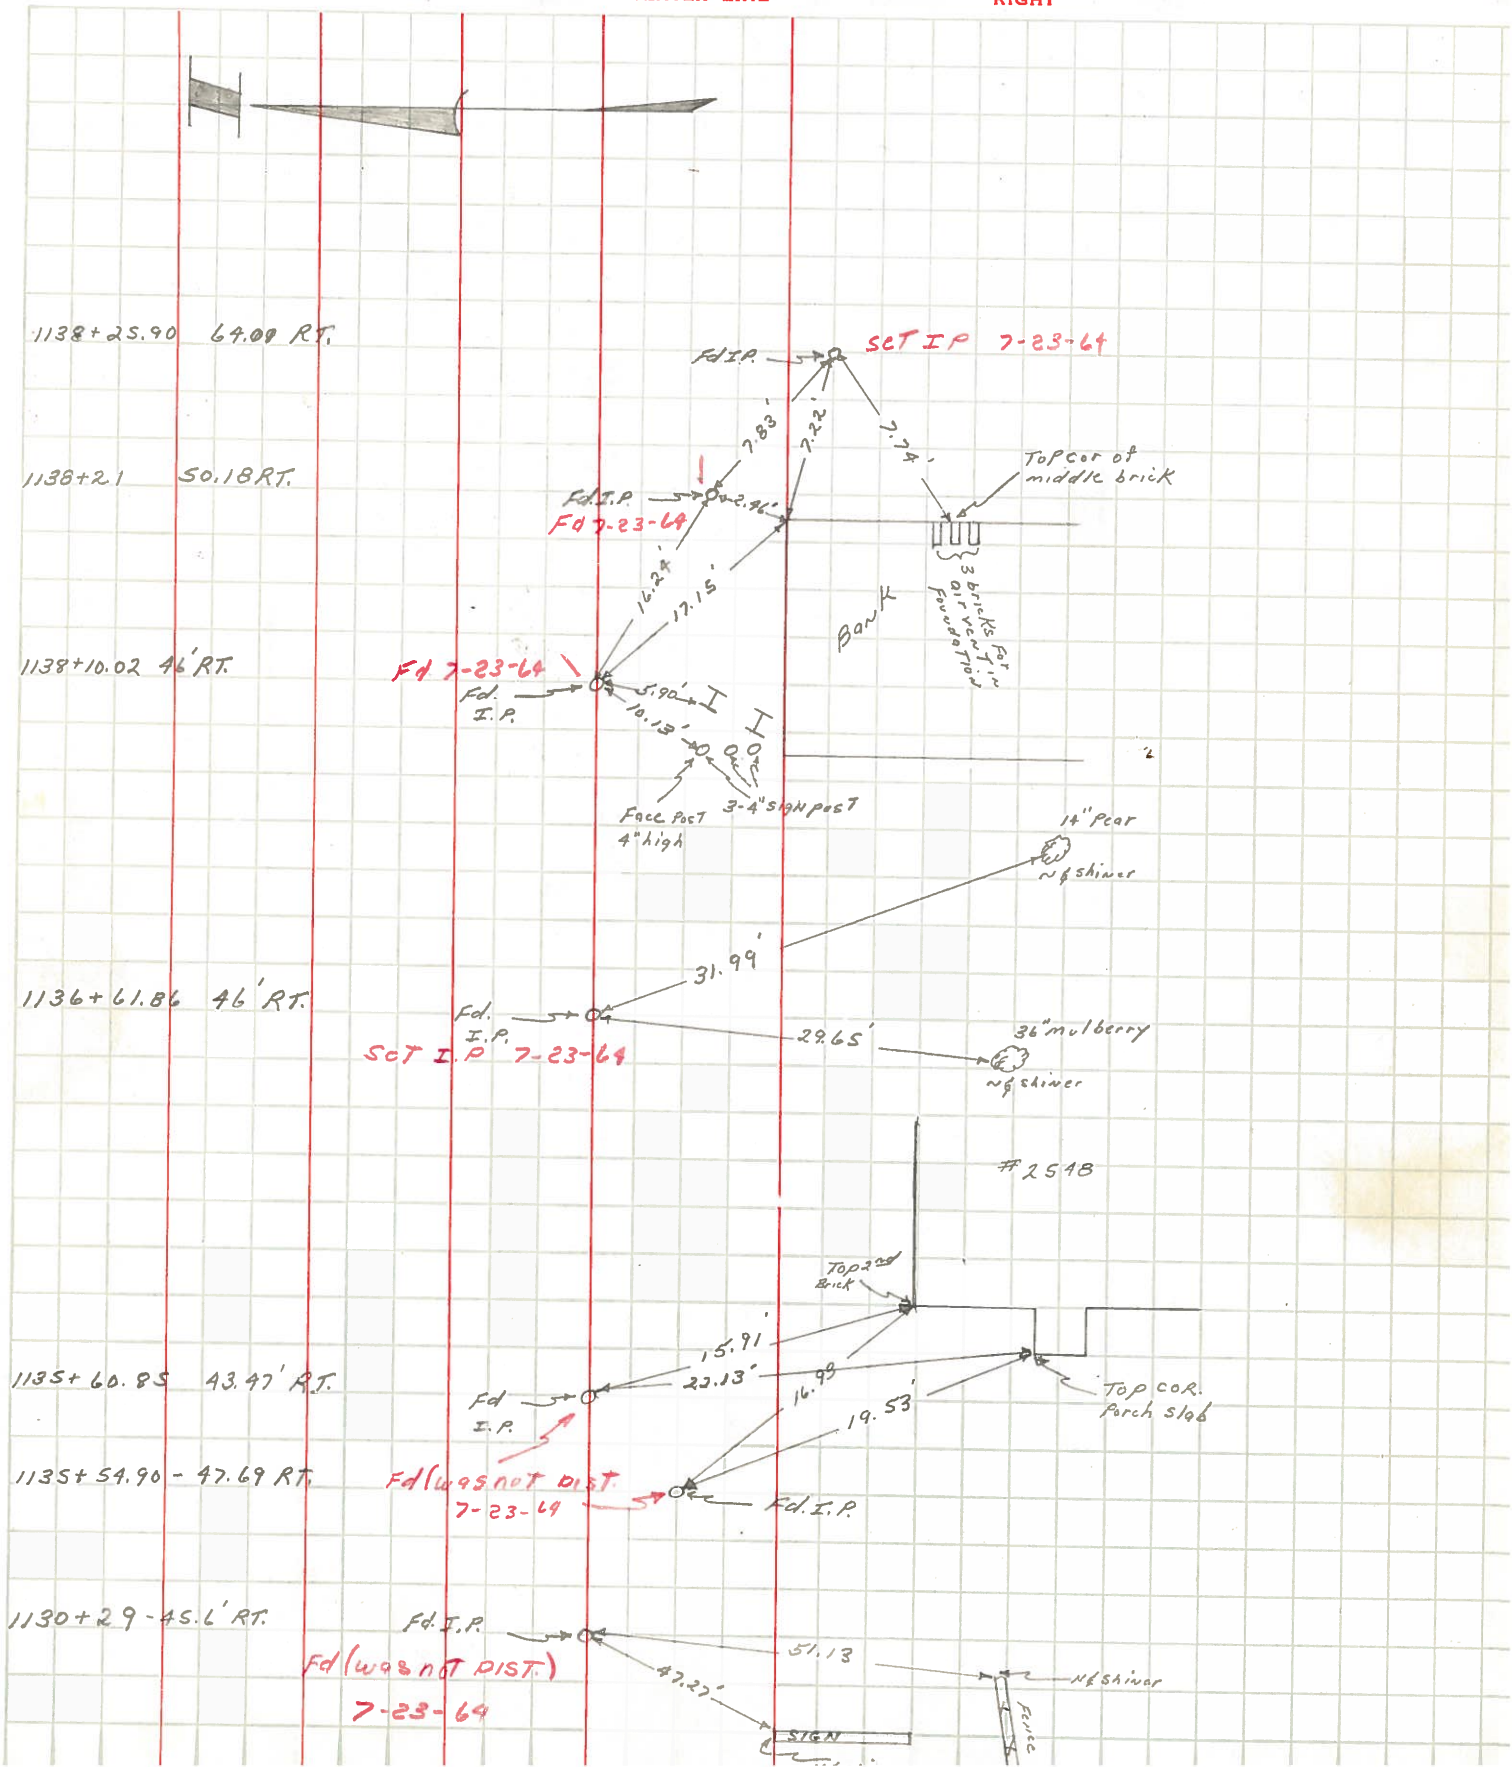 RIGHT
1138+25.90 64.00 RT.
Fd I.P.
SET I P 7-23-64
7.83'
7.22'
7.74'
Top cor of
middle brick
1138+2.1 50.18 RT.
Fd. I.P.
Fd 7-23-64
2.46'
16.24'
17.15'
Bank
3 bricks for
air vent in
Foundation
1138+10.02 46' RT.
Fd 7-23-64
Fd.
I.P.
5.90'
10.13'
3-4" sign post
Face Post
4" high
14" Pear
N&shiner
31.99'
1136+61.86 46' RT.
Fd.
I.P.
SET I.P 7-23-64
29.65'
36" mulberry
N&shiner
#2548
Top 2nd
Brick
15.91'
22.13'
16.99
19.53'
1135+60.85 43.47' RT.
Fd
I.P.
Top COR.
Porch slab
1135+54.90 - 47.69 RT.
Fd (was not DIST.
7-23-64
Fd. I.P.
1130+29 - 45.6' RT.
Fd. I.P.
Fd (was not DIST.)
7-23-64
51.13
47.27'
N&shiner
Fence
SIGN